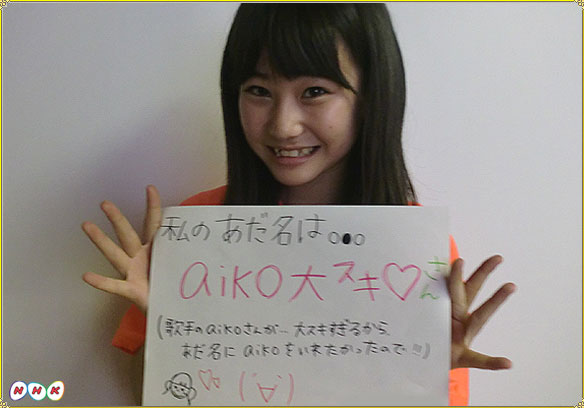 私のあだ名は。●。
aiko大スキ♡さん
(歌手のaikoさんが…大スキすぎるから、
あだ名にaikoをいれたかったので!!!)
(´∀`)
NHK